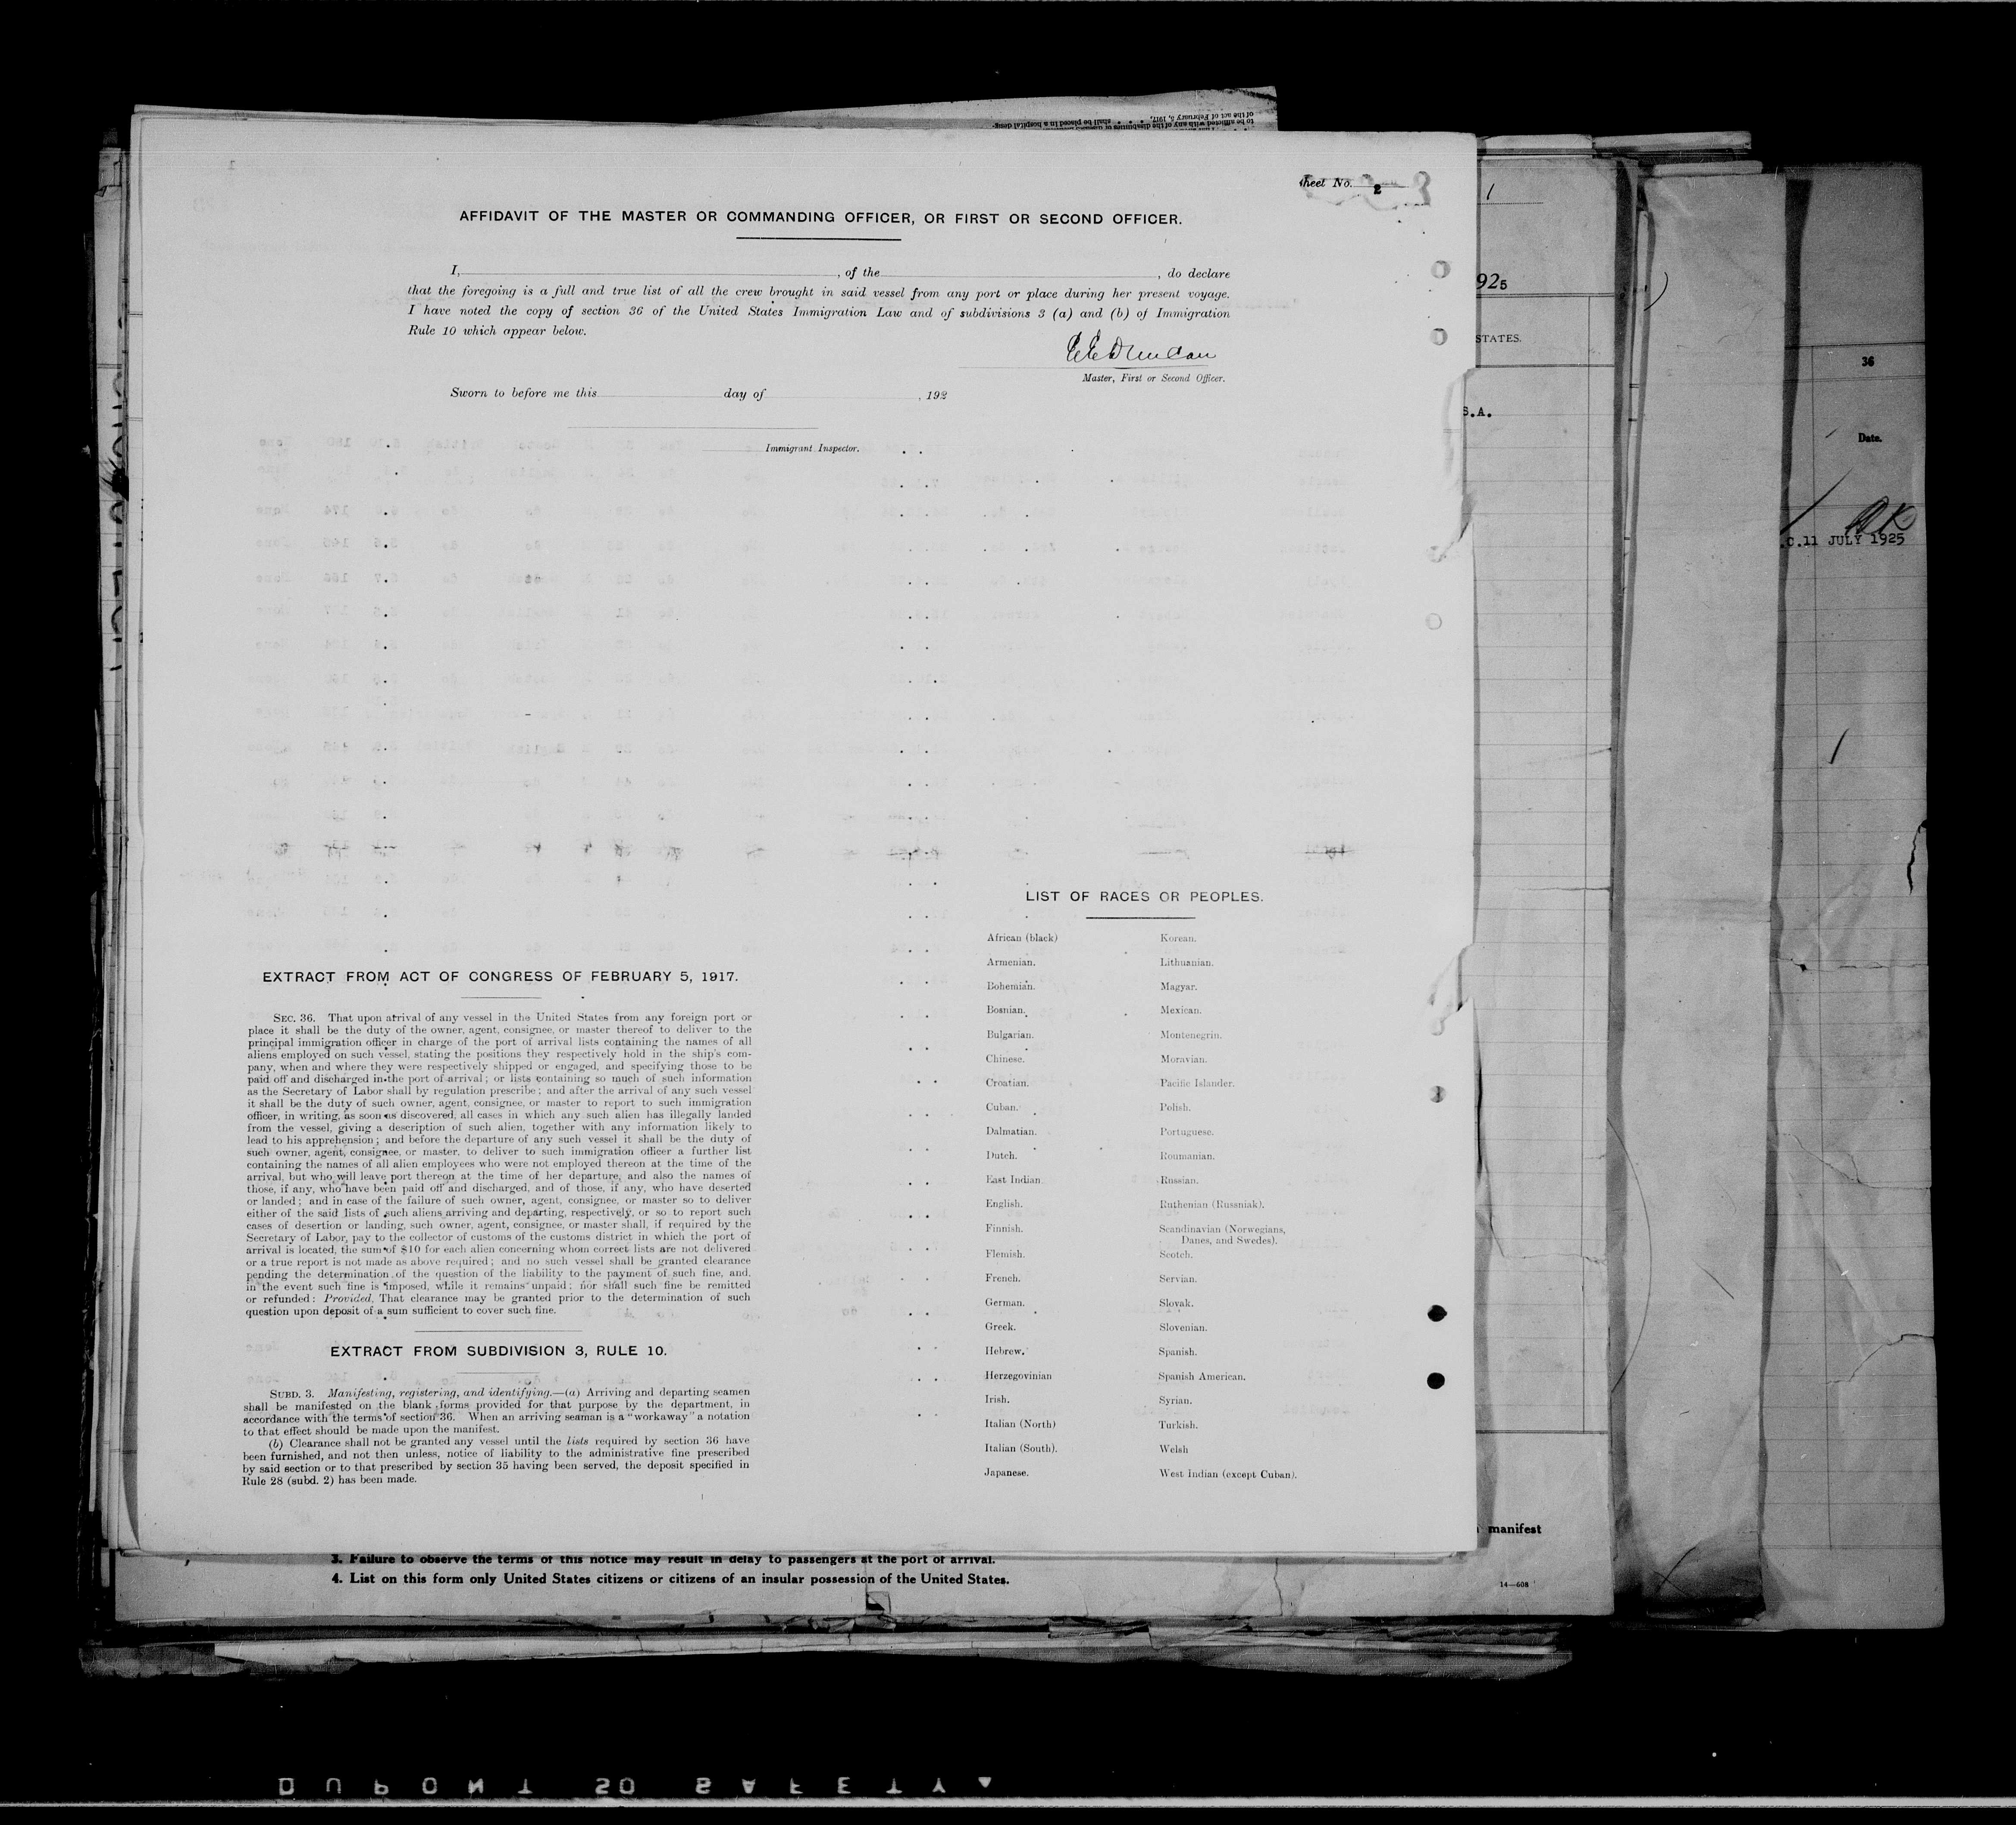 heet No. 2
AFFIDAVIT OF THE MASTER OR COMMANDING OFFICER, OR FIRST OR SECOND OFFICER.
I, , of the , do declare
that the foregoing is a full and true list of all the crew brought in said vessel from any port or place during her present voyage.
I have noted the copy of section 36 of the United States Immigration Law and of subdivisions 3 (a) and (b) of Immigration
Rule 10 which appear below.
Master, First or Second Officer.
Sworn to before me this day of , 192
Immigrant Inspector.
EXTRACT FROM ACT OF CONGRESS OF FEBRUARY 5, 1917.
SEC. 36. That upon arrival of any vessel in the United States from any foreign port or
place it shall be the duty of the owner, agent, consignee, or master thereof to deliver to the
principal immigration officer in charge of the port of arrival lists containing the names of all
aliens employed on such vessel, stating the positions they respectively hold in the ship's com-
pany, when and where they were respectively shipped or engaged, and specifying those to be
paid off and discharged in the port of arrival; or lists containing so much of such information
as the Secretary of Labor shall by regulation prescribe; and after the arrival of any such vessel
it shall be the duty of such owner, agent, consignee, or master to report to such immigration
officer, in writing, as soon as discovered, all cases in which any such alien has illegally landed
from the vessel, giving a description of such alien, together with any information likely to
lead to his apprehension; and before the departure of any such vessel it shall be the duty of
such owner, agent, consignee, or master, to deliver to such immigration officer a further list
containing the names of all alien employees who were not employed thereon at the time of the
arrival, but who will leave port thereon at the time of her departure, and also the names of
those, if any, who have been paid off and discharged, and of those, if any, who have deserted
or landed; and in case of the failure of such owner, agent, consignee, or master so to deliver
either of the said lists of such aliens arriving and departing, respectively, or so to report such
cases of desertion or landing, such owner, agent, consignee, or master shall, if required by the
Secretary of Labor, pay to the collector of customs of the customs district in which the port of
arrival is located, the sum of $10 for each alien concerning whom correct lists are not delivered
or a true report is not made as above required; and no such vessel shall be granted clearance
pending the determination of the question of the liability to the payment of such fine, and,
in the event such fine is imposed, while it remains unpaid; nor shall such fine be remitted
or refunded: Provided, That clearance may be granted prior to the determination of such
question upon deposit of a sum sufficient to cover such fine.
EXTRACT FROM SUBDIVISION 3, RULE 10.
SUBD. 3. Manifesting, registering, and identifying.—(a) Arriving and departing seamen
shall be manifested on the blank forms provided for that purpose by the department, in
accordance with the terms of section 36. When an arriving seaman is a "workaway" a notation
to that effect should be made upon the manifest.
(b) Clearance shall not be granted any vessel until the lists required by section 36 have
been furnished, and not then unless, notice of liability to the administrative fine prescribed
by said section or to that prescribed by section 35 having been served, the deposit specified in
Rule 28 (subd. 2) has been made.
LIST OF RACES OR PEOPLES.
African (black)
Armenian.
Bohemian.
Bosnian.
Bulgarian.
Chinese.
Croatian.
Cuban.
Dalmatian.
Dutch.
East Indian.
English.
Finnish.
Flemish.
French.
German.
Greek.
Hebrew.
Herzegovinian
Irish.
Italian (North)
Italian (South).
Japanese.
Korean.
Lithuanian.
Magyar.
Mexican.
Montenegrin.
Moravian.
Pacific Islander.
Polish.
Portuguese.
Roumanian.
Russian.
Ruthenian (Russniak).
Scandinavian (Norwegians,
Danes, and Swedes).
Scotch.
Servian.
Slovak.
Slovenian.
Spanish.
Spanish American.
Syrian.
Turkish.
Welsh
West Indian (except Cuban).
1
925
STATES.
S.A.
36
Date.
.C.11 JULY 1925
manifest
3. Failure to observe the terms of this notice may result in delay to passengers at the port of arrival.
4. List on this form only United States citizens or citizens of an insular possession of the United States.
14—608
of the act of February 5, 1917, shall be placed in a hospital desig-
DUPONT SAFETY